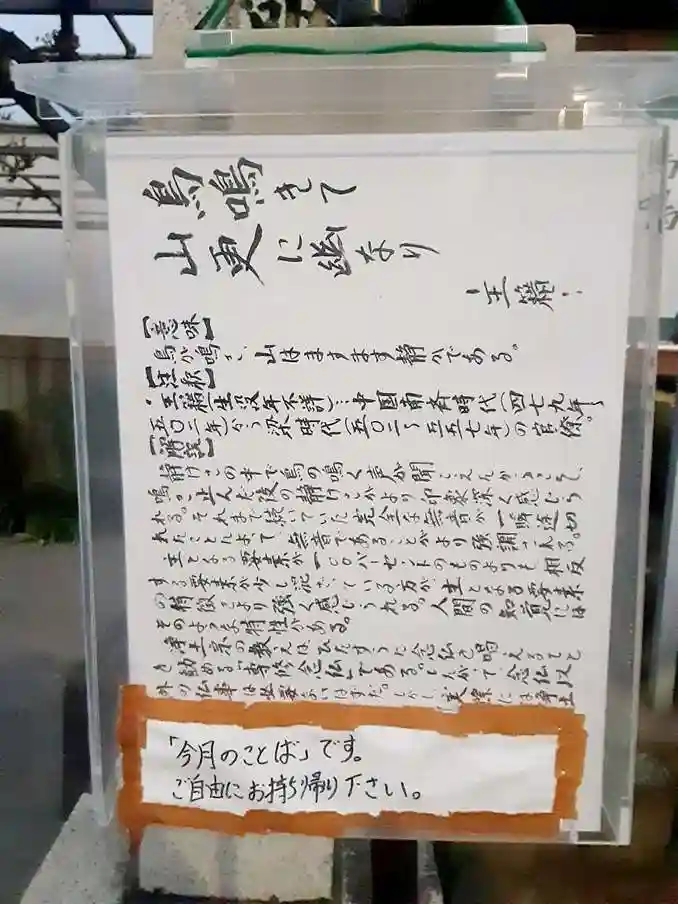 鳥鳴きて
山更に幽なり
王籍
【意味】
鳥が鳴き、山はますます静かである。
【注釈】
・王籍(生没年不詳)…中国南斉時代(四七九年〜
五〇二年)から梁時代(五〇二〜五五七年)の官僚。
【解説】
静けさの中で鳥の鳴く声が聞こえんがうこそ、
鳴き止んだ後の静けさがより印象深く感じら
れる。それまで続いていた完全な無音が一瞬途切
れたことによって無音であることがより強調される。
主となる要素が一〇〇パーセントのものよりも、相反
する要素が少し混じっている方が主となる要素
の特徴をより強く感じられる。人間の知覚には
そのような特性がある。
浄土宗の教えは、ひたすらに念仏を唱えること
を勧める「専修念仏」である。したがって、念仏以
外の仏事は必要ないはずだ。しかし、実際には浄土
「今月のことば」です。
ご自由にお持ち帰り下さい。